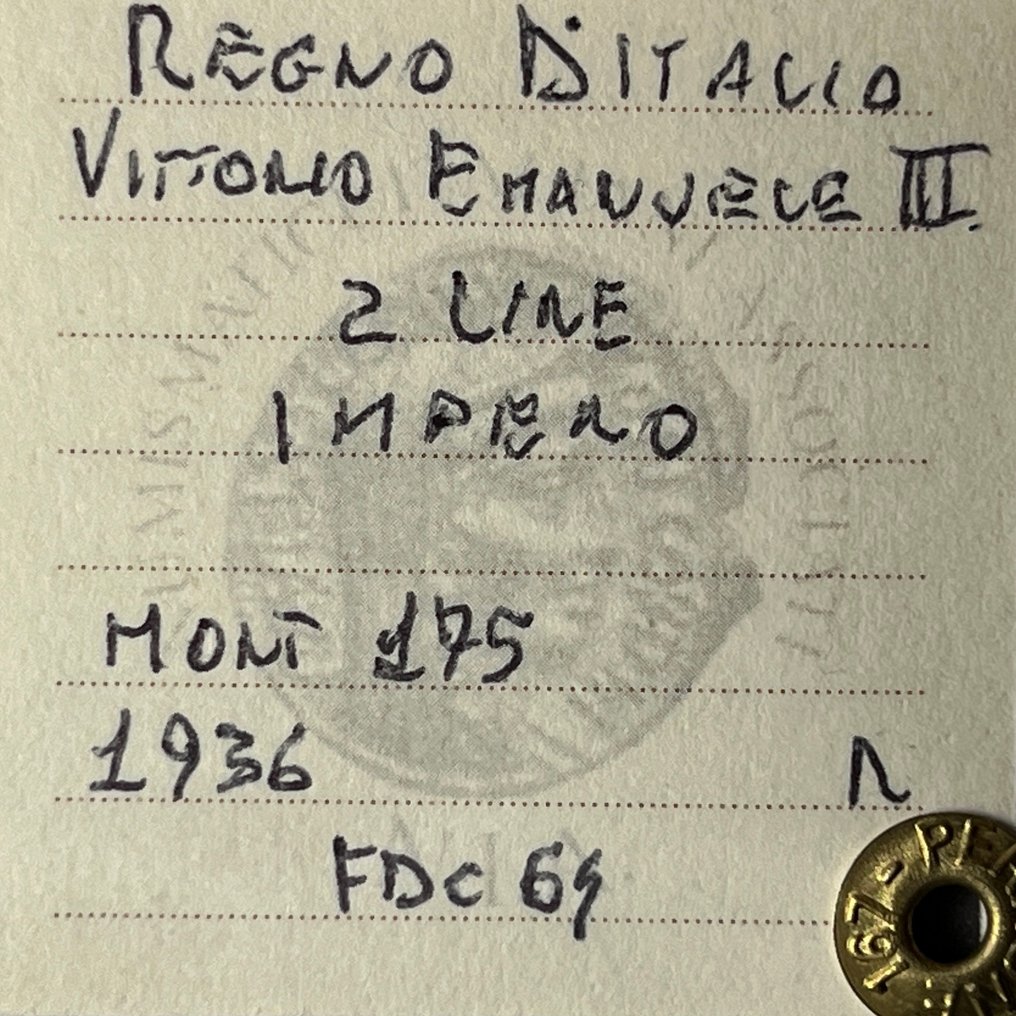 REGNO D'ITALIA
VITTORIO EMANUELE III.
2 LIRE
IMPERO
MONT 175
1936 R
FDC 64
167 - PE